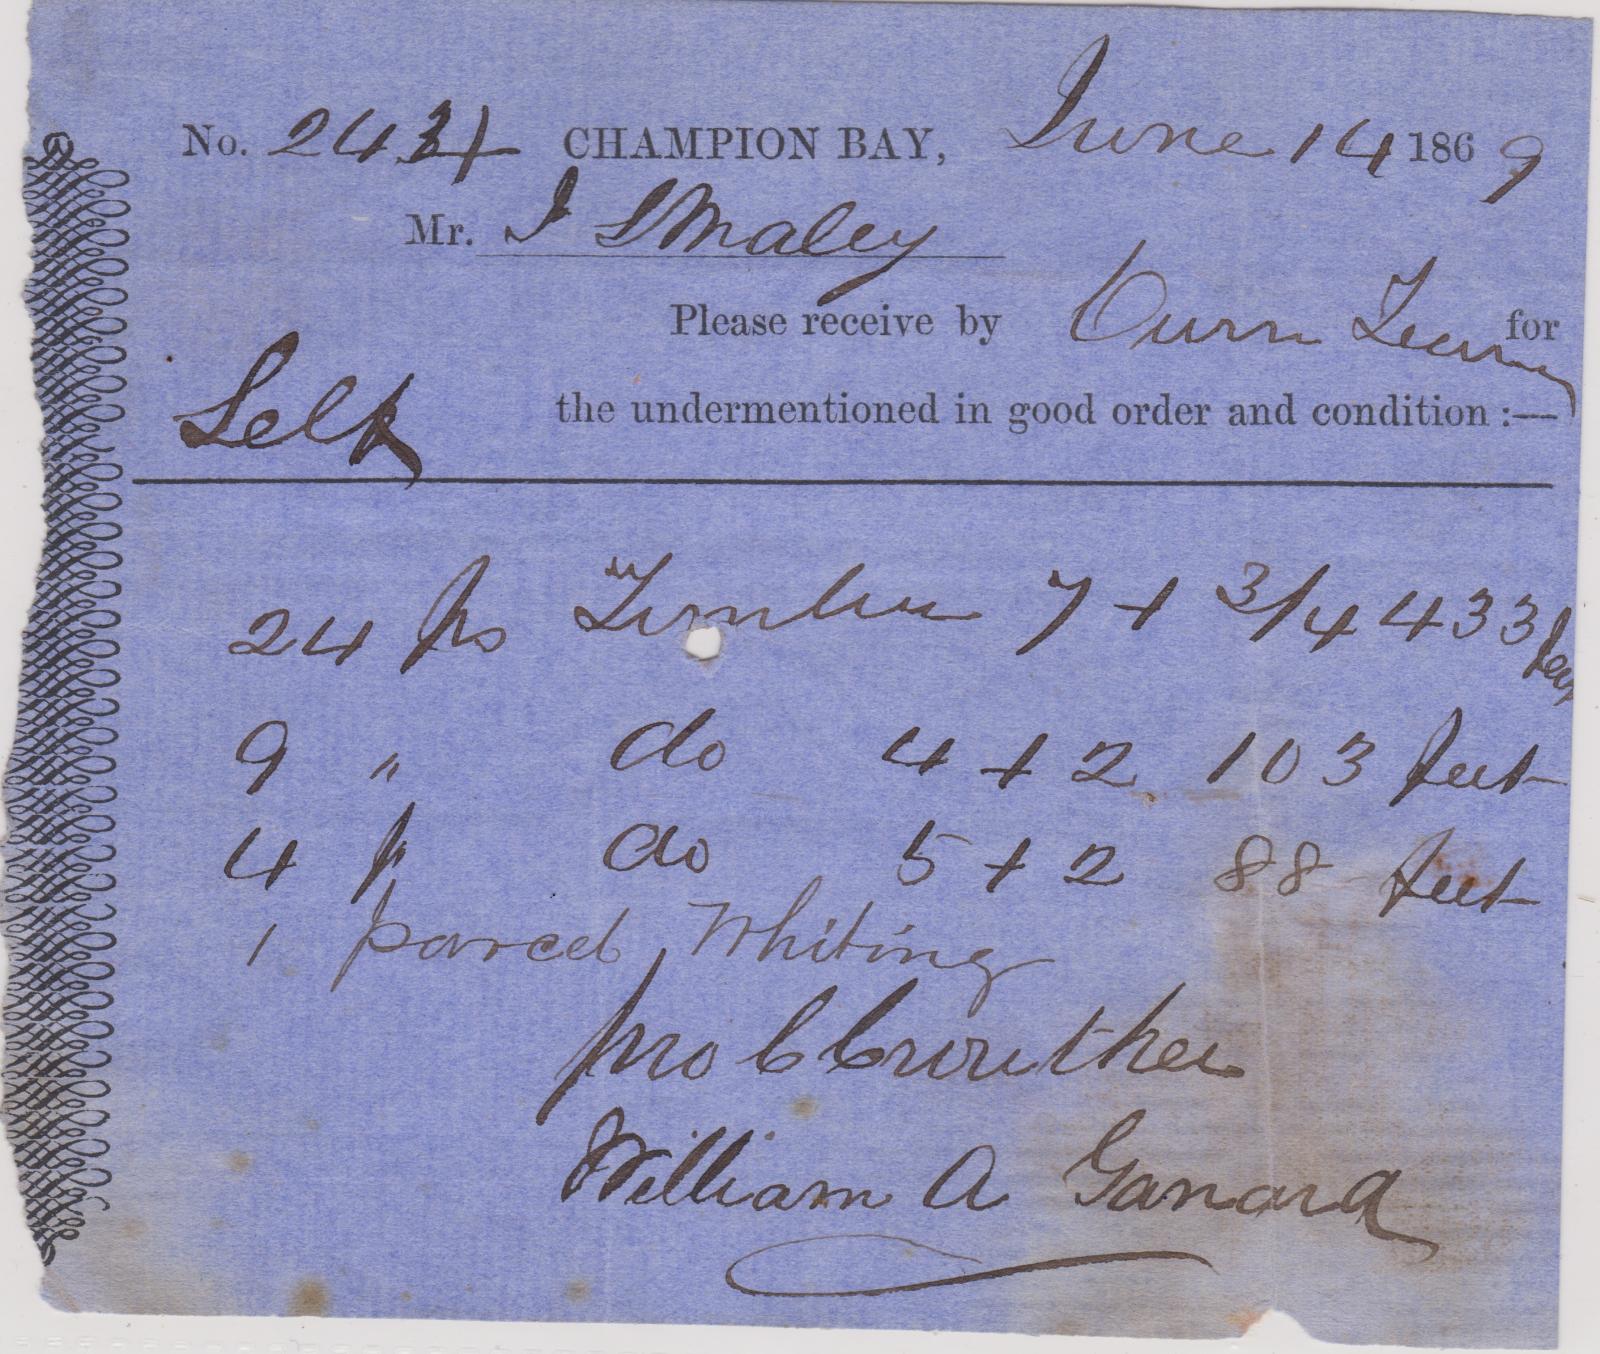 No. 2434 CHAMPION BAY, June 14 1869
Mr. J S Maley
Please receive by Own Team for
Self the undermentioned in good order and condition :—
24 ps Timber 7 + 3/4 433 feet
9 " do 4 + 2 103 feet
4 p do 5 + 2 88 feet
1 parcel Whiting
pro C Crowther
William A